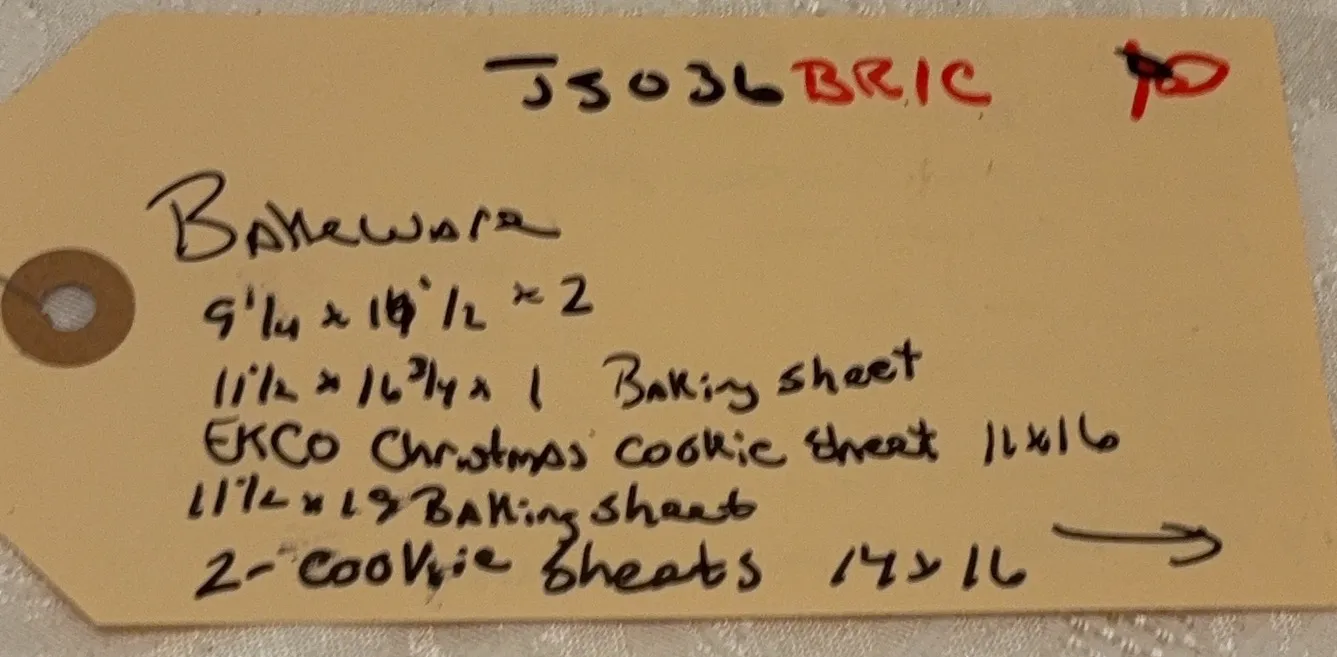 JS036 BRIC
Bakeware
9 1/4 x 1/2 x 2
11 1/2 x 16 3/4 x 1 Baking sheet
EKCO Christmas cookie sheet 11x16
11 1/2 x 18 Baking sheet
2- cookie sheets 14x16 →